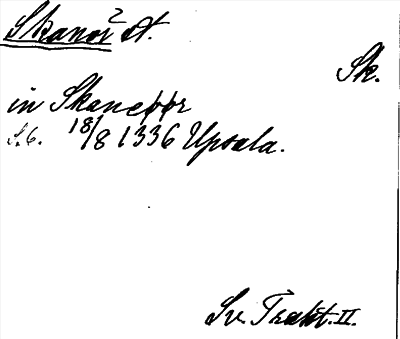 Skanör² st.
Sk.
in Skaneþþr
S.6. 18/8 1336 Upsala.
Sv. Trakt. II.